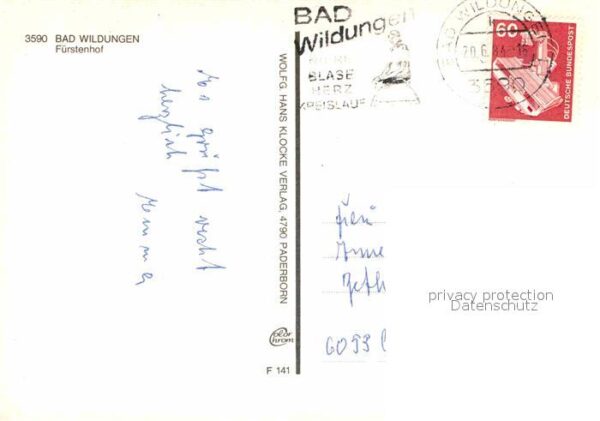 3590 BAD WILDUNGEN
Fürstenhof
Es grüßt recht
herzlich
WOLFG. HANS KLOCKE VERLAG, 4790 PADERBORN
color
chrom
F 141
BAD
Wildungen
NIERE
BLASE
HERZ
KREISLAUF
BAD WILDUNGEN
20.6.84-16
3590
60
DEUTSCHE BUNDESPOST
Anne
6093
privacy protection
Datenschutz